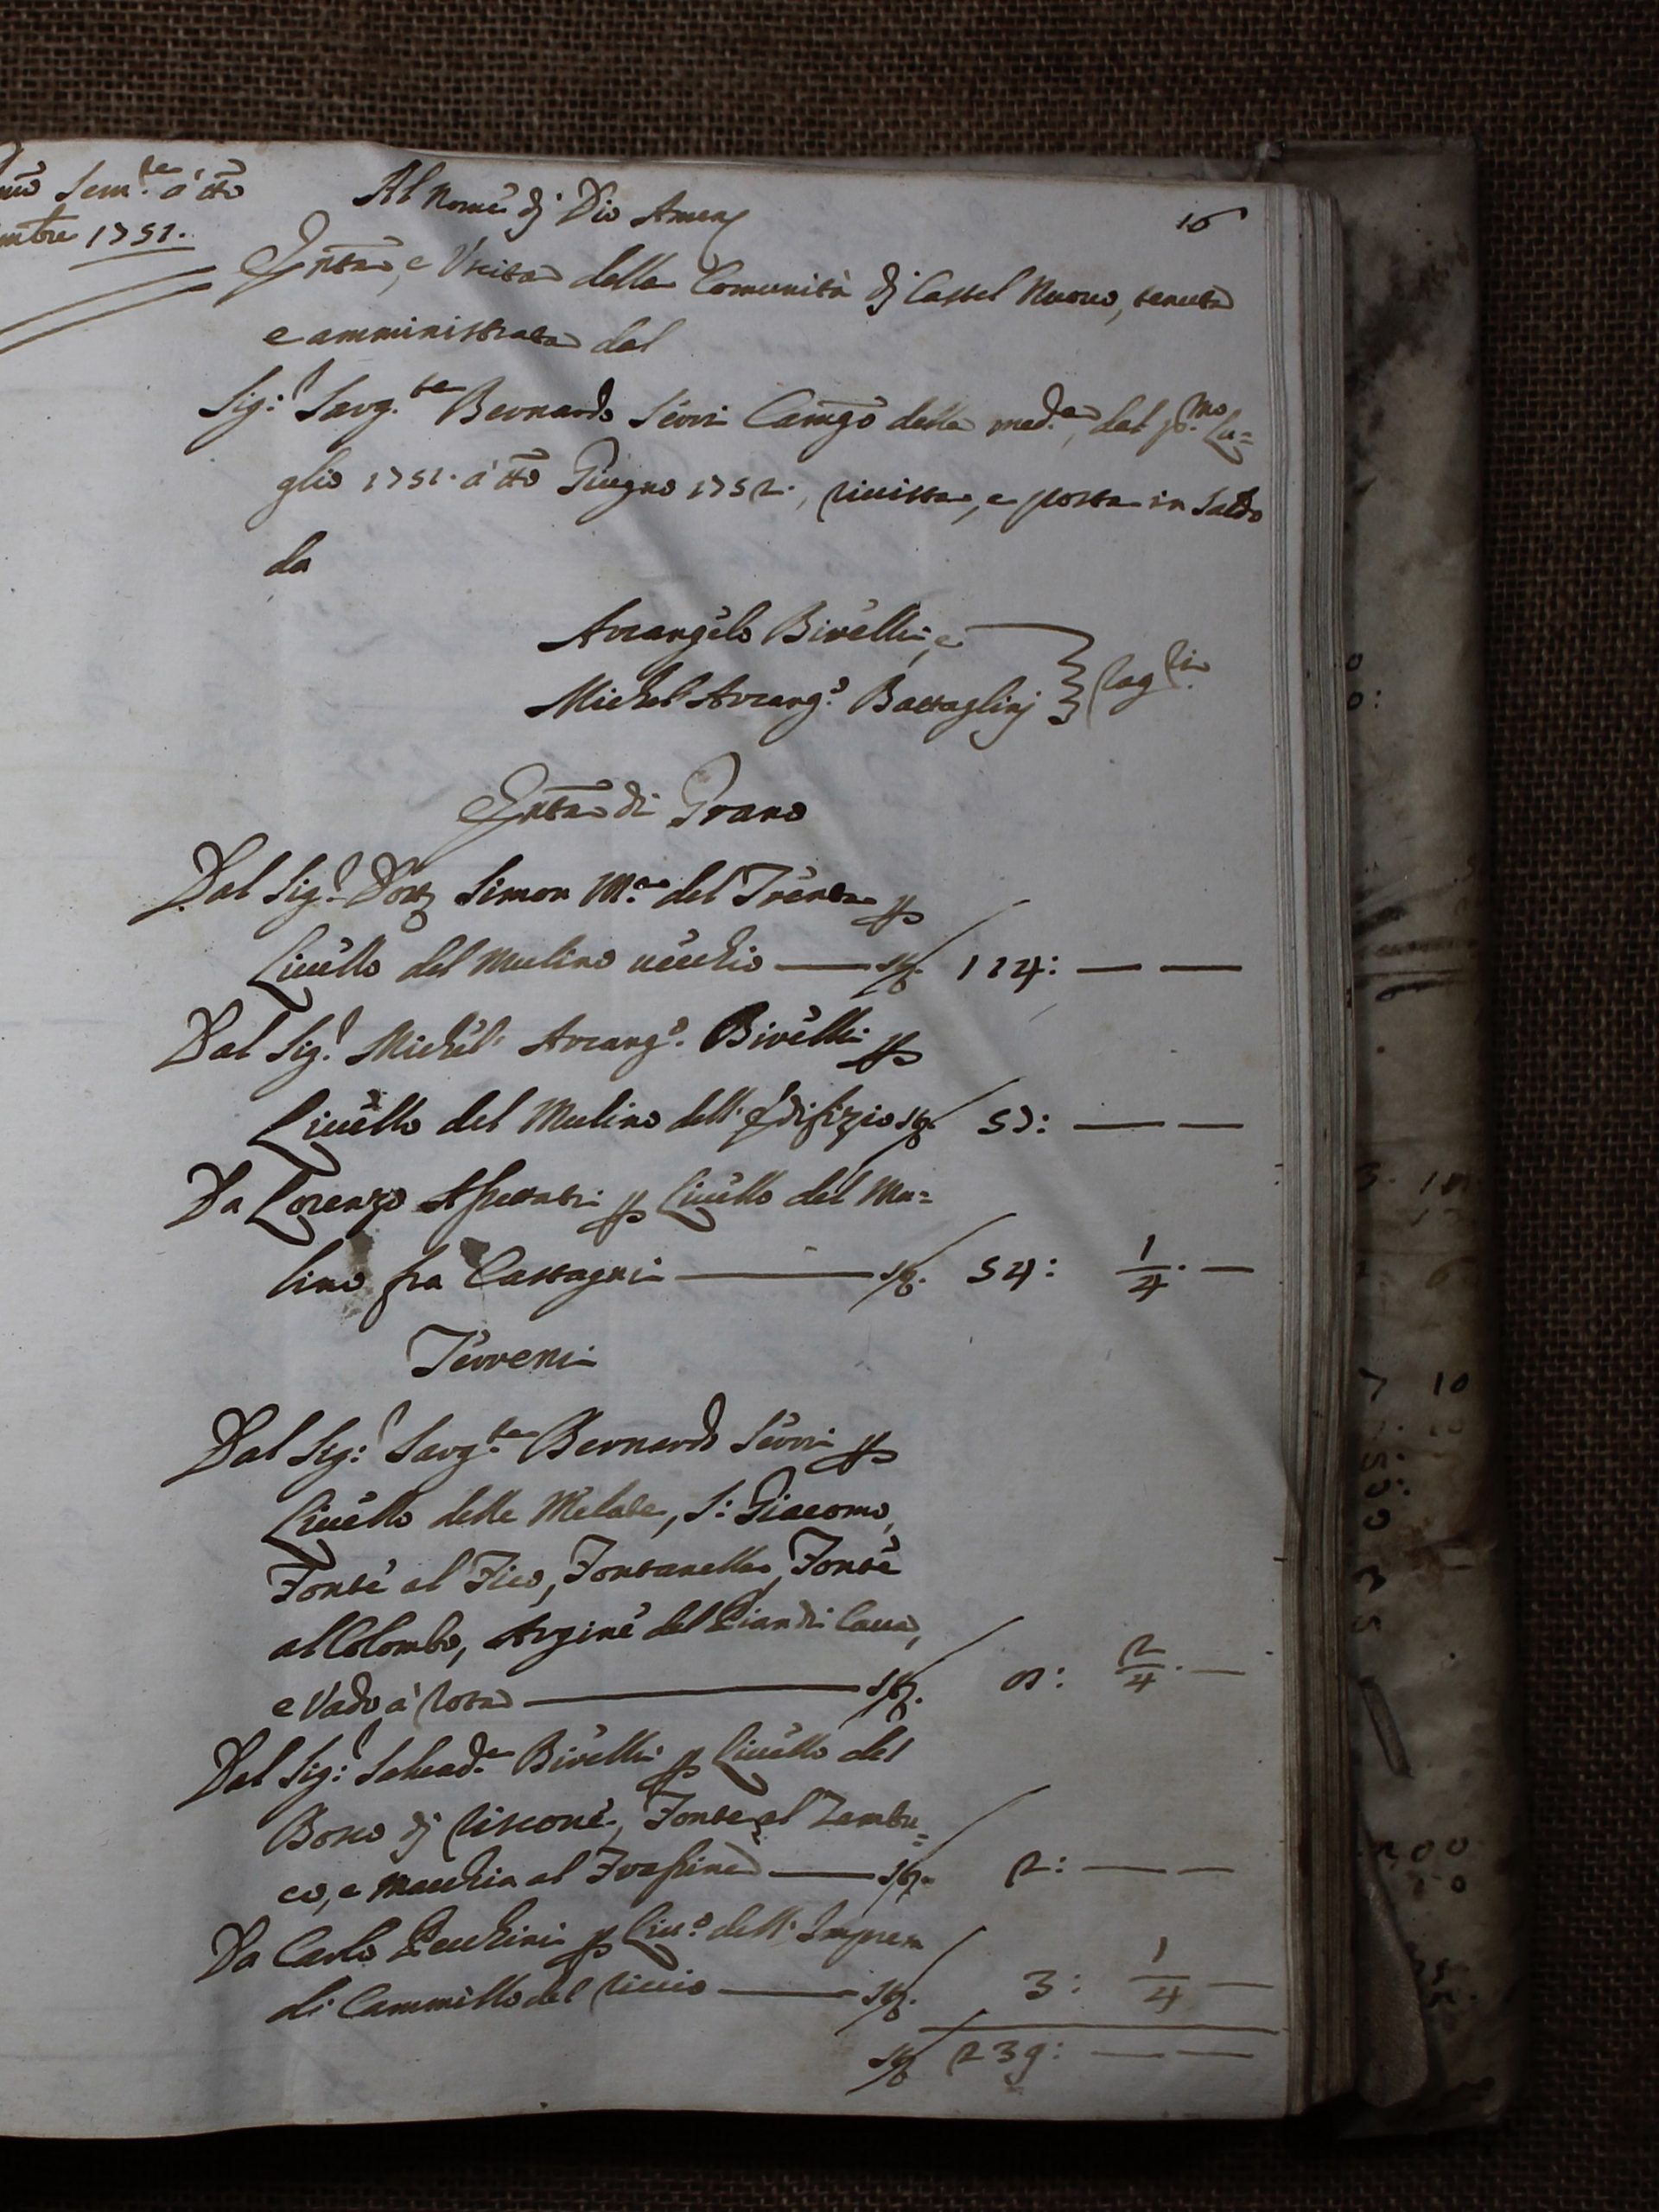 Sem.re à tto
mbre 1751.
Al Nome dj Dio Amen
16
Entra, e Uscita della Comunità dj Castel Nuovo, tenuta
e amministrata dal
Sig.r Sarg.te Bernardo Serri Camgo della med.a, dal p.mo Lu=
glio 1751. à tto Giugno 1752., rivista, e posta in Saldo
da
Arcangelo Birelli, e
Michel Arcang.o Battaglinj } Rag.ri
Entra di Grano
Dal Sig.r Dott. Simon M.a del Trenta p
Livello del Mulino vecchio — sa. 114: — —
Dal Sig.r Michel' Arcang.o Birelli p
Livello del Mulino dell'Edifizio sa. 57: — —
Da Lorenzo Aspettati p Livello del Mu=
lino fra Castagni — sa. 54: 1/4. —
Terreni
Dal Sig.r Sarg.te Bernardo Serri p
Livello delle Melate, S: Giacomo,
Fonte al Fico, Fontanella, Fonte
al Colombo, Argine del Pian di Cava,
e Vado à Rota — sa. 8: 2/4. —
Dal Sig.r Salvad.e Birelli p Livello del
Bosco dj Riscone, Fonte al Zambu=
co, e Macchia al Frassine — sa. 2: — —
Da Carlo Pecchini p Liv.o dell'Impresa
di Cammillo del Riccio — sa. 3: 1/4 —
sa 239: — —